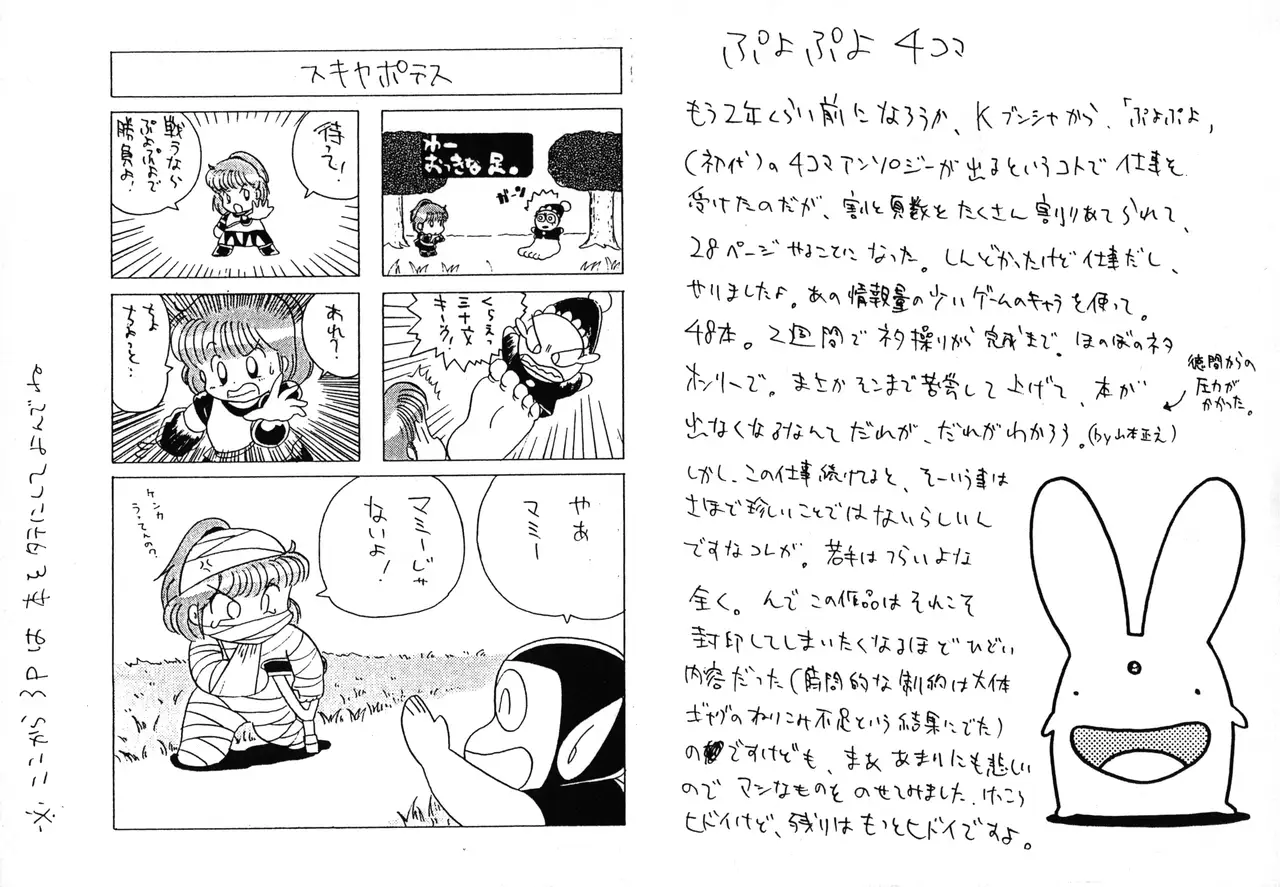 ぷよぷよ 4コマ
もう2年くらい前になろうか、Kブンシャから、「ぷよぷよ」
(初代)の4コマアンソロジーが出るというコトで仕事を
受けたのだが、割と頁数をたくさん割りあてられて、
28ページやることになった。しんどかったけど仕事だし、
やりましたよ。あの情報量の少いゲームのキャラを使って。
48本。2週間でネタ操りから完成まで。ほのぼのネタ
オンリーで。まさかそこまで苦労して上げて、本が
出なくなるなんてだれが、だれがわかろう。(by山本正之)
徳間からの
圧力が
かかった。
しかし、この仕事続けてると、そーいう事は
さほで珍しいことではないらしいん
ですなコレが。若手はつらいよな
全く。んでこの作品はそれこそ
封印してしまいたくなるほどひどい
内容だった(時間的な制約は大体
ギャグのねりこみ不足という結果にでた)
のですけども、まああまりにも悲しい
のでマシなものをのせてみました。けっこう
ヒドイけど、残りはもっとヒドイですよ。
スキヤポデス
わー
おっきな足。
ガーン
待って!
戦うなら
ぷよぷよで
勝負よ!
くらえっ
三十文
キーック!
あれ?
ちょ
ちょっと…
やあ
マミー
マミーじゃ
ないよ!
ケンカ
うってんの?
※ココから3Pは本をタテにしてよんでね